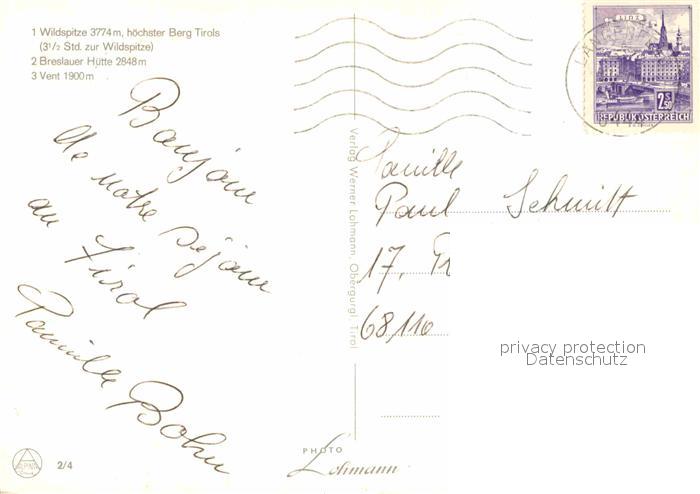 1 Wildspitze 3774 m, höchster Berg Tirols
(3½ Std. zur Wildspitze)
2 Breslauer Hütte 2848 m
3 Vent 1900 m
Bonjour
de notre séjour
au Tirol
Famille Bohn
2/4
Verlag Werner Lohmann, Obergurgl, Tirol
PHOTO
Lohmann
LINZ
2 S 50
REPUBLIK ÖSTERREICH
Famille
Paul Schmitt
17,
68110
privacy protection
Datenschutz